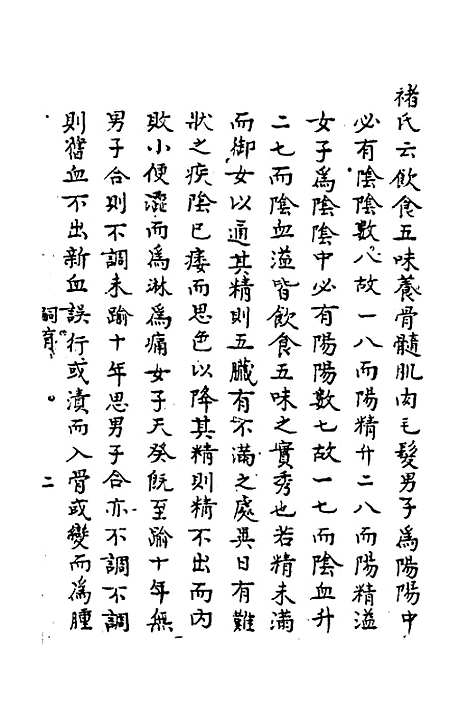 褚氏云飲食五味養骨髓肌肉毛髮男子爲陽陽中
必有陰陰數八故一八而陽精升二八而陽精溢
女子爲陰陰中必有陽陽數七故一七而陰血升
二七而陰血溢皆飲食五味之實秀也若精未滿
而御女以通其精則五臟有不滿之處異日有難
狀之疾陰已痿而思色以降其精則精不出而內
敗小便澀而爲淋爲痛女子天癸旣至踰十年無
男子合則不調未踰十年思男子合亦不調不調
則舊血不出新血誤行或漬而入骨或變而爲腫
嗣育
二